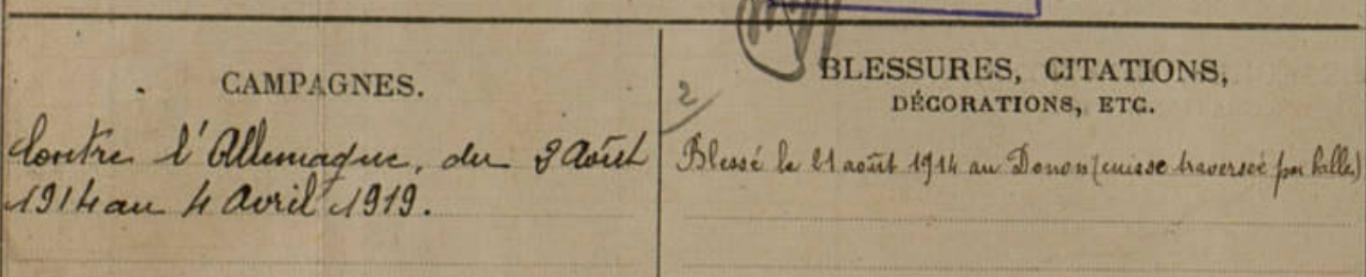 CAMPAGNES.
Contre l'Allemagne, du 3 Août
1914 au 4 Avril 1919.
BLESSURES, CITATIONS,
DÉCORATIONS, ETC.
2
Blessé le 21 août 1914 au Donon (cuisse traversée par balle)